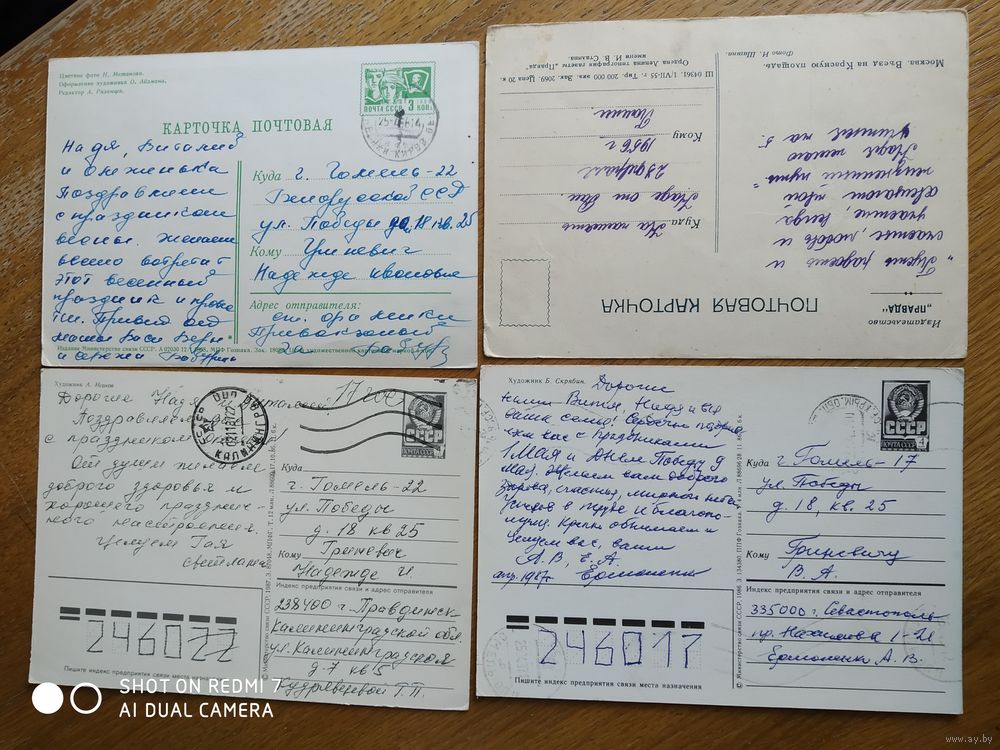 Цветное фото Н. Матанова.
Оформление художника О. Айзмана.
Редактор А. Рязанцев.
ПОЧТА СССР 3 КОП.
КАРТОЧКА ПОЧТОВАЯ
Надя, Виталий
и Оленька
Поздравляем
с праздником
весны. Желаем
весело встретить
этот весенний
праздник и провести.
Привет от
Куда г. Гомель-22
Белорусской ССР
ул. Победы д. 18 кв. 25
Кому Гриневич
Надежде Ивановне
Адрес отправителя:
Издание Министерства связи СССР.
Москва. Въезд на Красную площадь.
Фото Н. Шагина.
Ордена Ленина типография газеты "Правда"
имени И. В. Сталина.
Ш 04361. 1/VII-55 г. Тир. 200 000 экз. Зак. 2069. Цена 20 к.
Издательство
"ПРАВДА"
ПОЧТОВАЯ КАРТОЧКА
"Пусть радость и
счастье, любовь и
участие, всегда
освещают твой
жизненный путь"
Наде желаю
учиться на 5.
Куда На память
Наде от Вали
28 февраля
1956 г
Кому
Художник А. Исаков
Дорогие Надя и Виталий!
Поздравляем
с праздником
От души желаем
доброго здоровья и
хорошего празднич-
ного настроения.
Целуем Галя
Светлана
КАЛИНИНГР
СССР
ПОЧТА СССР
Куда
г. Гомель-22
ул. Победы
д. 18 кв 25
Кому Гриневич
Надежде И.
Индекс предприятия связи и адрес отправителя
238400 г. Правдинск
Калининградской обл.
ул. Калининградская
д-7 кв 5
Кудрявцевой Т.П.
246022
Пишите индекс предприятия связи места назначения
© Министерство связи СССР, 1987
Художник Б. Скрябин.
Дорогие
наши Виталий, Надя и вся
ваша семья! Сердечно поздрав-
ляем вас с праздниками
1 Мая и Днем Победы 9
Мая. Желаем вам доброго
здоровья, счастья, мирного неба
Успехов в труде и благопо-
лучия. Крепко обнимаем и
целуем вас, ваши
А.В., Е.А.
апр. 1987г Ермоленко
СССР
ПОЧТА СССР 4
Куда г. Гомель-17
ул. Победы
д. 18, кв. 25
Кому Гриневичу
В. А.
Индекс предприятия связи и адрес отправителя
335000 г. Севастополь
пр. Нахимова 1-21
Ермоленко А. В.
246017
Пишите индекс предприятия связи места назначения
© Министерство связи СССР, 1986
SHOT ON REDMI 7
AI DUAL CAMERA
www.ay.by